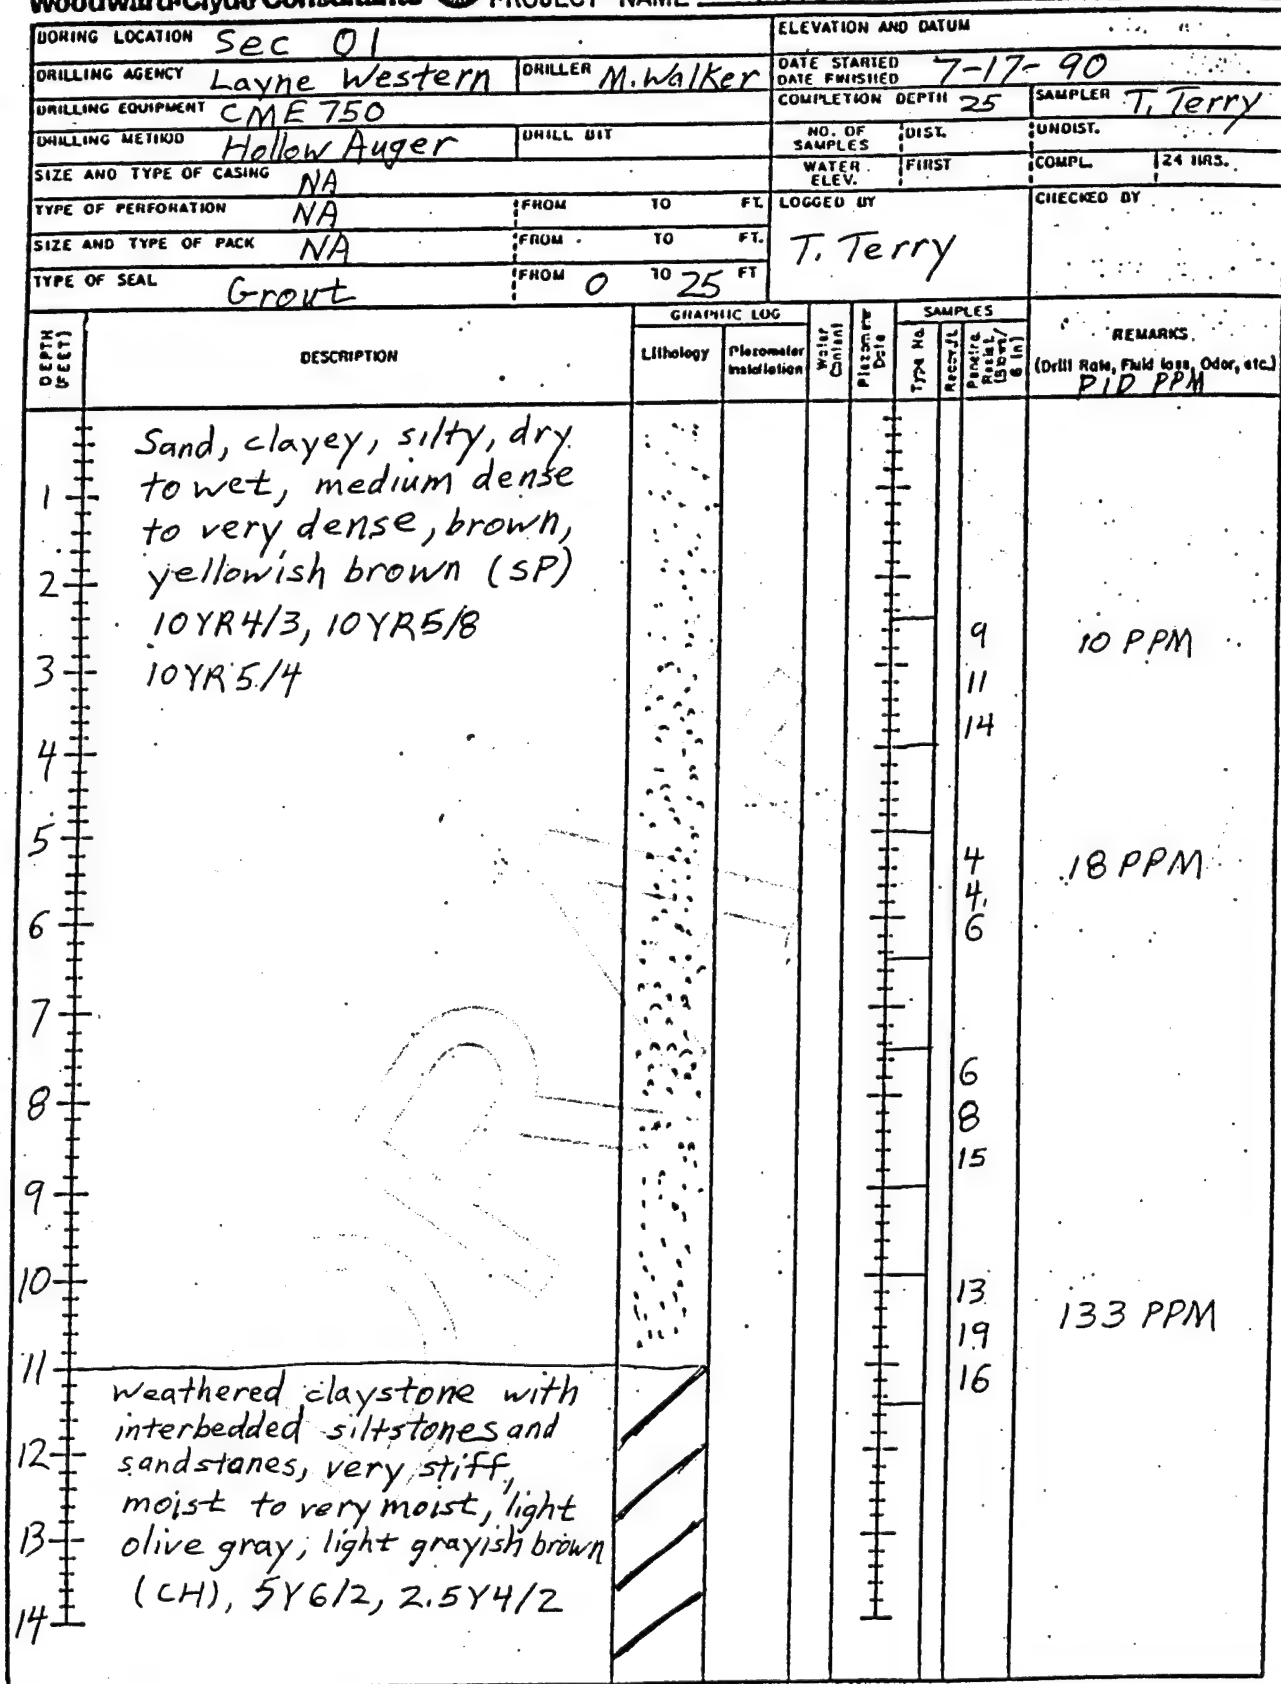 Woodward-Clyde Consultants PROJECT NAME
BORING LOCATION Sec 01
ELEVATION AND DATUM
DRILLING AGENCY Layne Western DRILLER M. Walker
DATE STARTED 7-17-90
DATE FINISHED
DRILLING EQUIPMENT CME 750
COMPLETION DEPTH 25 SAMPLER T. Terry
DRILLING METHOD Hollow Auger DRILL BIT
NO. OF SAMPLES DIST. UNDIST.
SIZE AND TYPE OF CASING NA
WATER ELEV. FIRST COMPL. 24 HRS.
TYPE OF PERFORATION NA FROM TO FT.
LOGGED BY T. Terry CHECKED BY
SIZE AND TYPE OF PACK NA FROM TO FT.
TYPE OF SEAL Grout FROM 0 TO 25 FT
DEPTH (FEET)
DESCRIPTION
GRAPHIC LOG
Lithology
Piezometer Installation
Water Content
Piezometer Data
SAMPLES
Type No.
Recov. ft.
Penetra. Resist. (Blows/ 6 in)
REMARKS
(Drill Rate, Fluid loss, Odor, etc.)
PID PPM
Sand, clayey, silty, dry
1 to wet, medium dense
to very dense, brown,
2 yellowish brown (SP)
10YR4/3, 10YR5/8 9 10 PPM
3 10YR5/4 11
14
4
5 4 18 PPM
4
6 6
7
6
8 8
15
9
10 13
19 133 PPM
11 16
Weathered claystone with
interbedded siltstones and
12 sandstanes, very stiff,
moist to very moist, light
13 olive gray; light grayish brown
(CH), 5Y6/2, 2.5Y4/2
14